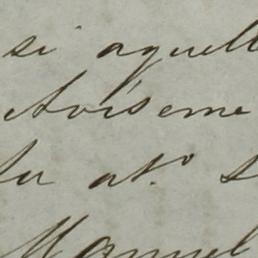 si aquell
Aviseme
su atº. s
Manuel